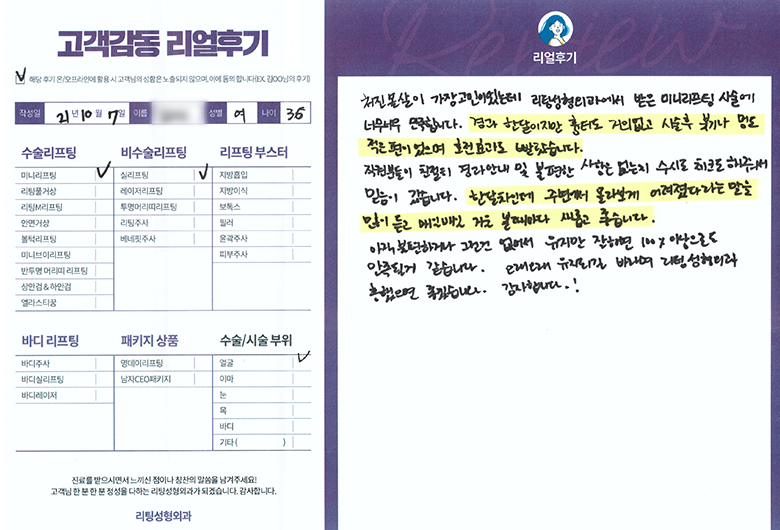 고객감동 리얼후기
해당 후기 온/오프라인에 활용 시 고객님의 성함은 노출되지 않으며, 이에 동의 합니다(EX. 김OO님의 후기)
작성일 21년 10월 7일 이름 성별 여 나이 36
수술리프팅 비수술리프팅 리프팅 부스터
미니리프팅 실리프팅 지방흡입
리팅풀거상 레이저리프팅 지방이식
리팅M리프팅 투명머리띠리프팅 보톡스
안면거상 리팅주사 필러
볼턱리프팅 베네핏주사 윤곽주사
미니브이리프팅 피부주사
반투명 머리띠 리프팅
상안검 & 하안검
엘라스티꿈
바디 리프팅 패키지 상품 수술/시술 부위
바디주사 영데이리프팅 얼굴
바디실리프팅 남자CEO패키지 이마
바디레이저 눈
목
바디
기타 ( )
진료를 받으시면서 느끼신 점이나 칭찬의 말씀을 남겨주세요!
고객님 한 분 한 분 정성을 다하는 리팅성형외과가 되겠습니다. 감사합니다.
리팅성형외과
Review
리얼후기
처진 볼살이 가장 고민이었는데 리팅성형외과에서 받은 미니리프팅 시술에
너무너무 만족합니다. 경과 한달이지만 흉터도 거의없고 시술후 붓기나 멍도
적은편이었으며 호전효과도 빨랐습니다.
직원분들이 친절히 경과안내 및 불편한 사항은 없는지 수시로 체크도 해주셔서
믿음이 갔습니다. 한달차인데 주변에서 몰라보게 어려졌다라는 말을
많이 듣고 매일매일 거울 볼때마다 새롭고 좋습니다.
아직 불편하거나 그런건 없어서 유지만 잘하면 100% 이상으로도
만족될거 같습니다. 오래오래 유지되길 바라며 리팅성형외과
흥했으면 좋겠습니다. 감사합니다.!